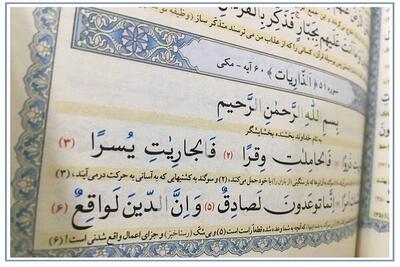 عَلَيْهِمْ بِجَبَّارٍ فَذَكِّرْ بِالْقُرْآنِ
وسیله قرآن، کسانی را که از عذاب من می ترسند متذکر ساز (وظیفه تو
سوره ۵۱ ﴿ اَلذّارِیات ﴾ ۶۰ آیه - مکی
بِسْمِ اللهِ الرَّحْمٰنِ الرَّحِيمِ
به نام خداوند بخشنده بخشایشگر
فَالْحَامِلَاتِ وِقْرًا (۲) فَالْجَارِيَاتِ يُسْرًا (۳)
(از باران را) با خود حمل می‌کنند، (۲) و سوگند به کشتیهایی که به آسانی به حرکت درمی‌آیند، (۳)
إِنَّمَا تُوعَدُونَ لَصَادِقٌ (۵) وَإِنَّ الدِّينَ لَوَاقِعٌ (۶)
که آنچه به شما وعده شده قطعاً راست است (۵) و بی شک (رستاخیز) و جزای اعمال واقع شدنی است! (۶)